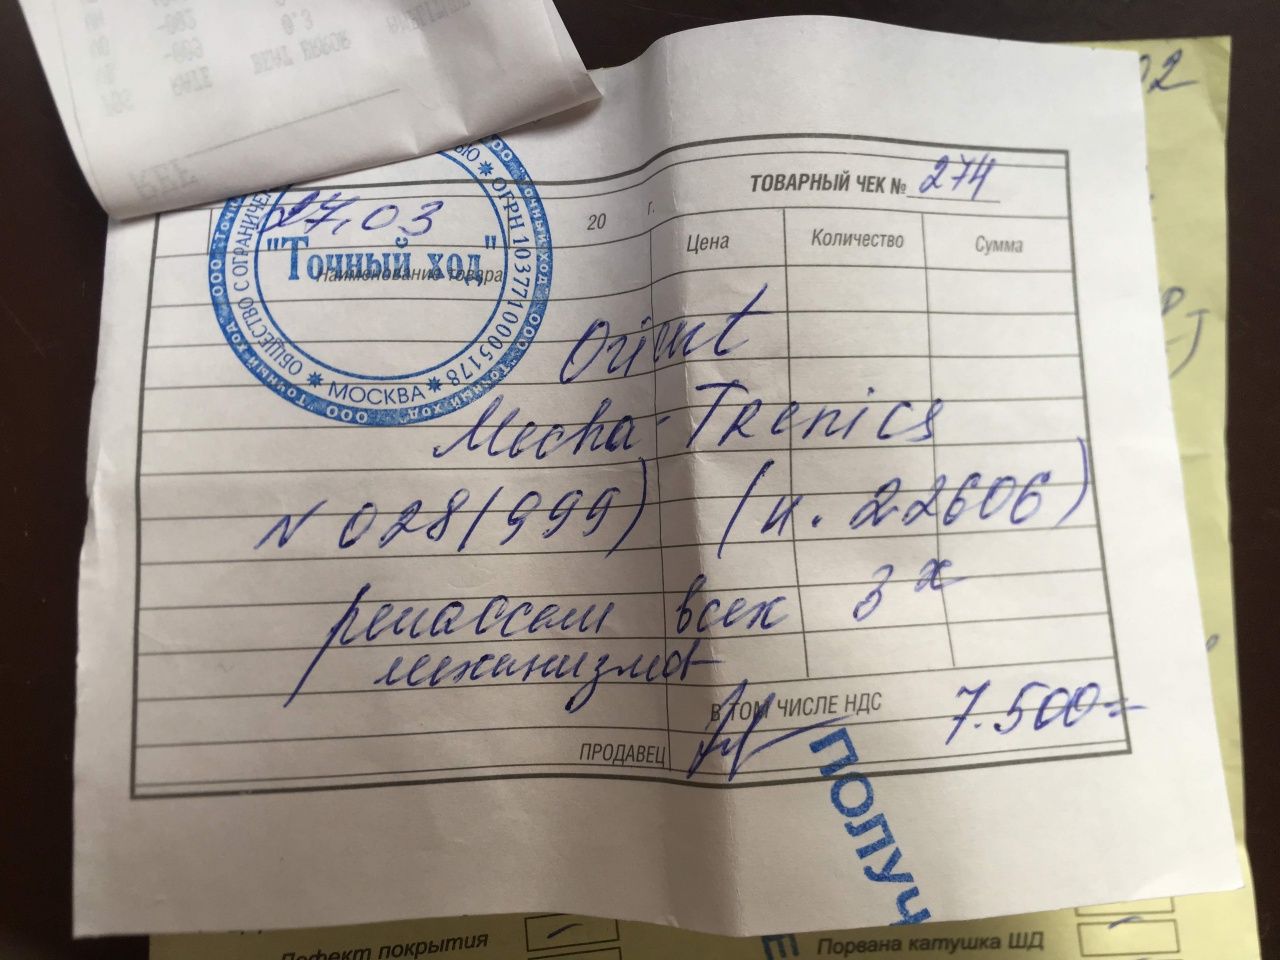 ТОВАРНЫЙ ЧЕК № 274
27.03 20 г.
Наименование товара Цена Количество Сумма
ОБЩЕСТВО С ОГРАНИЧЕ
ОГРН 1037710005178
МОСКВА
ООО "Точный ход"
"Точный ход"
Orient
Mecha-Tronics
N 028 (999) (н. 22606)
репассаж всех 3х
механизмов
В ТОМ ЧИСЛЕ НДС 7.500=
ПРОДАВЕЦ
ПОЛУЧ
покрытия
Порвана катушка ШД